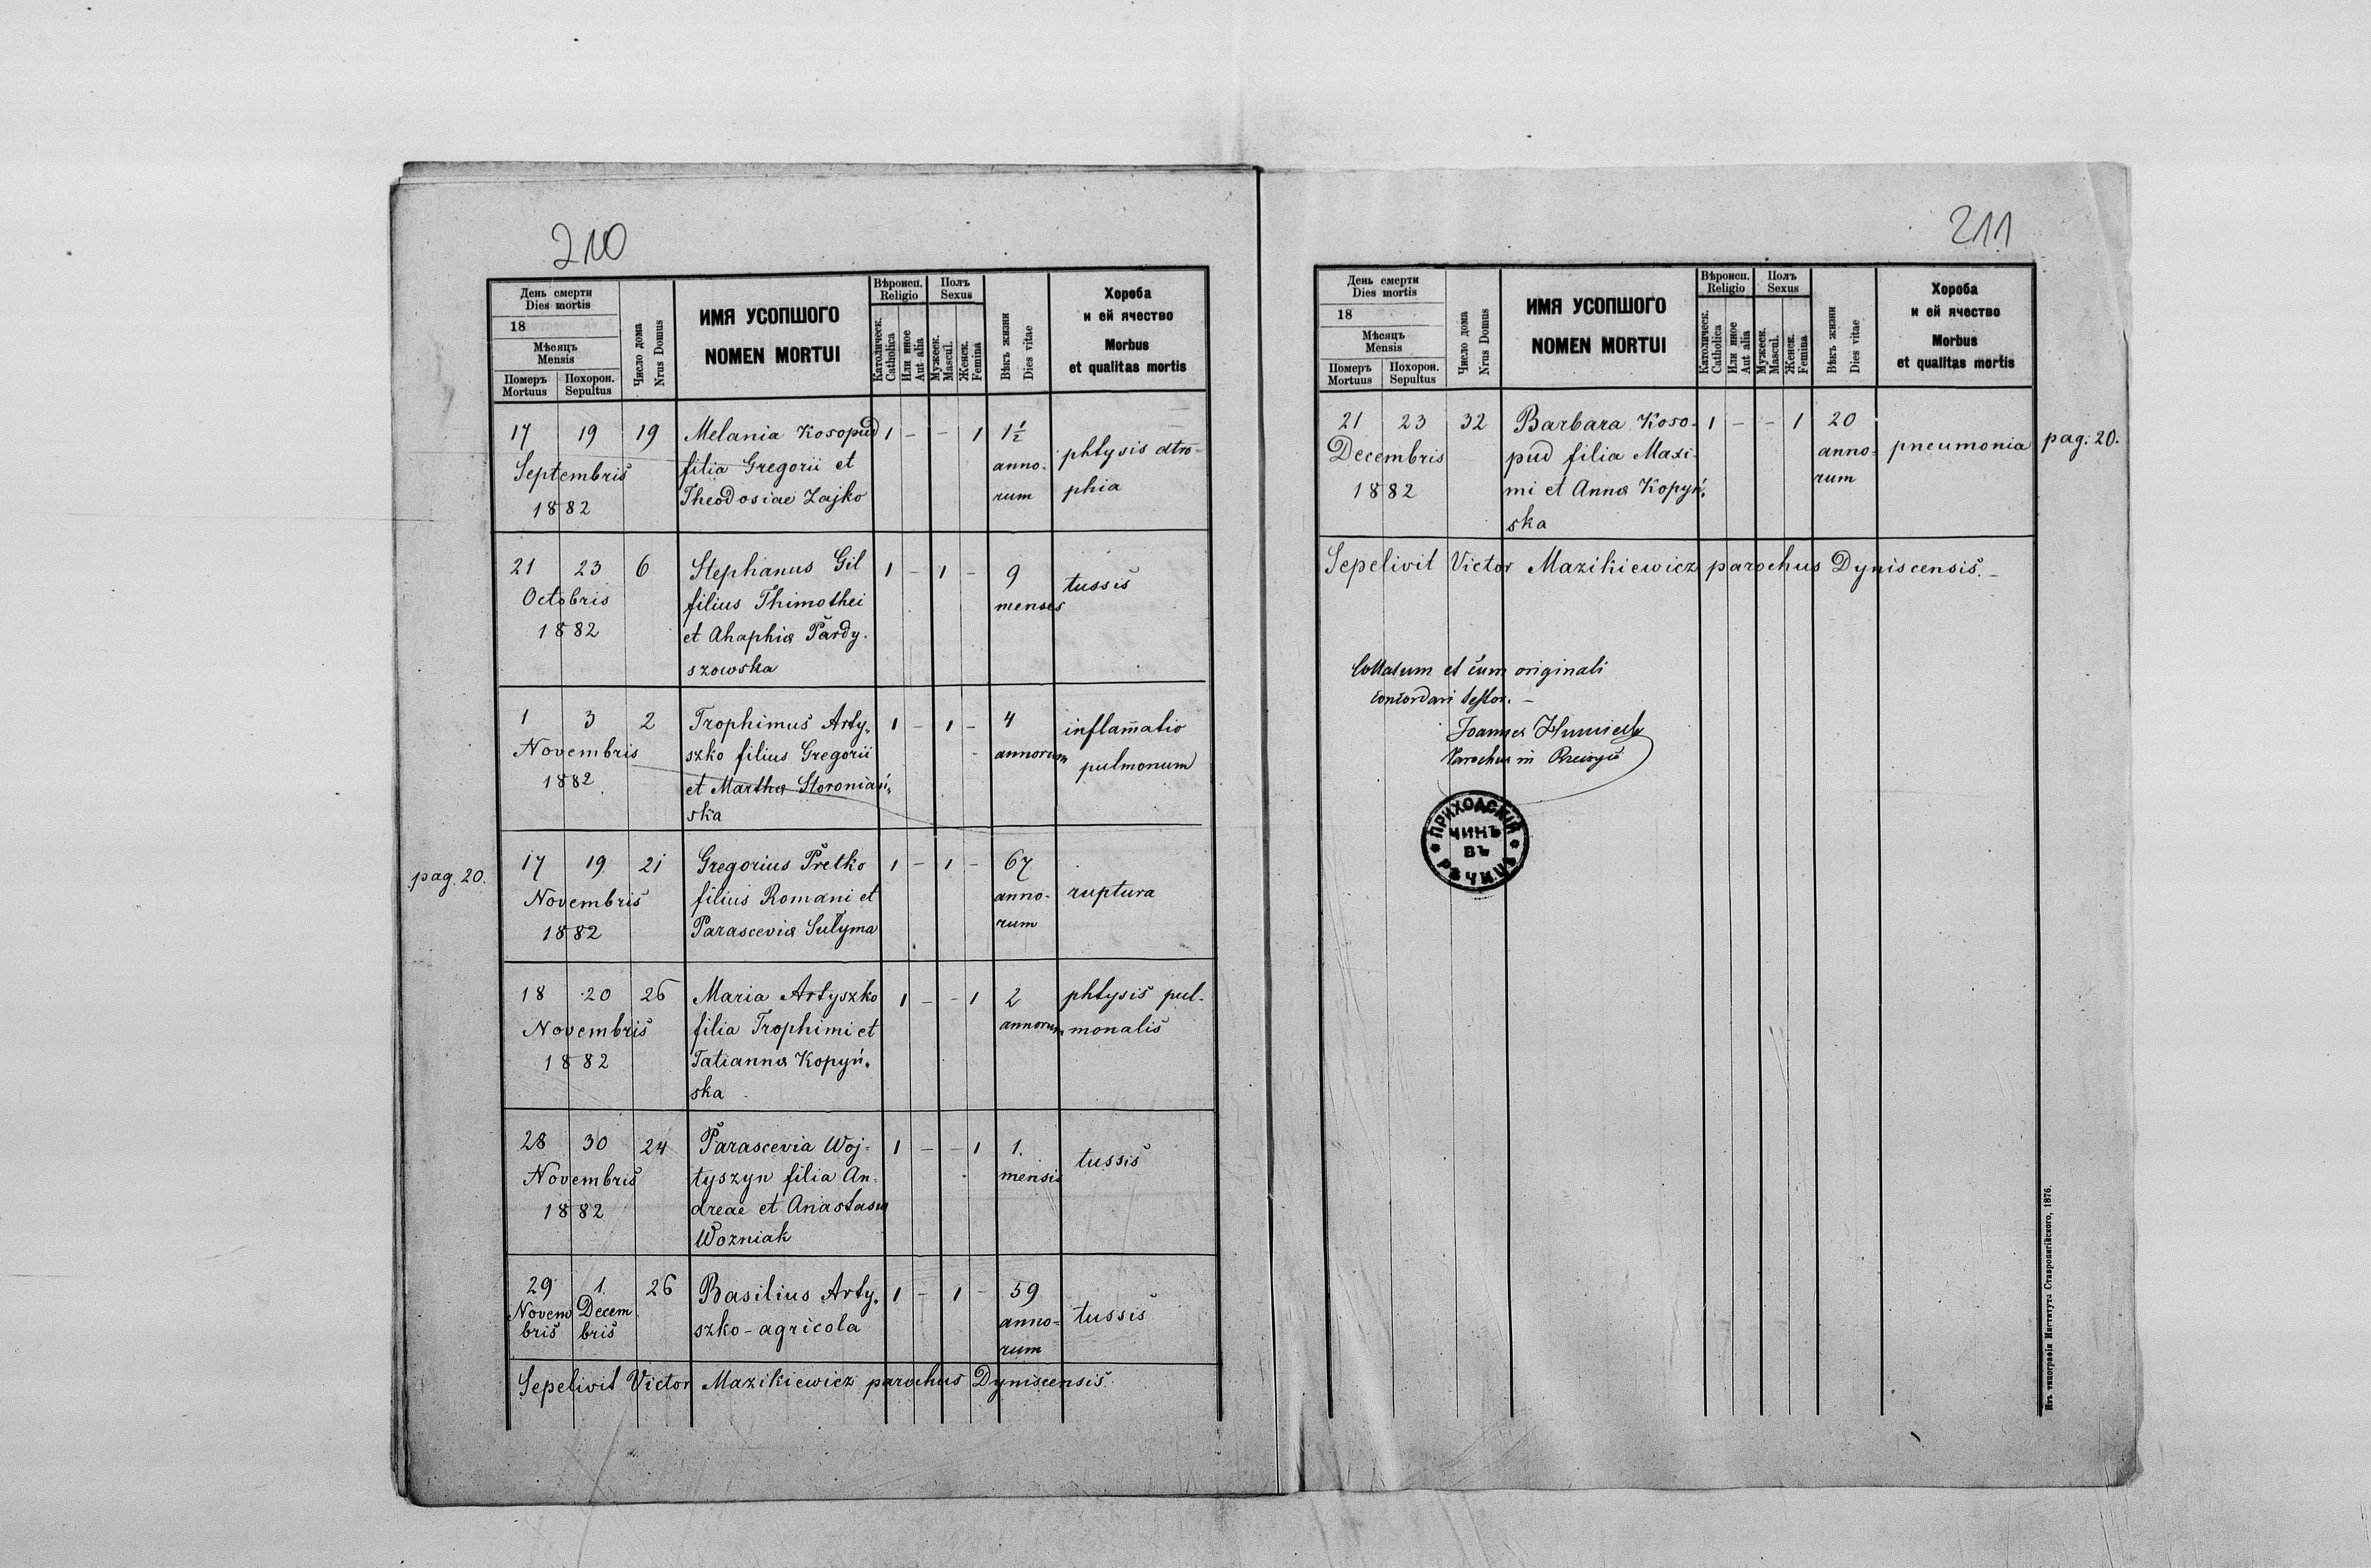 210
День смерти
Dies mortis
18
Мѣсяцъ
Mensis
Померъ
Mortuus
Похорон.
Sepultus
Число дома
Nrus Domus
ИМЯ УСОПШОГО
NOMEN MORTUI
Вѣроисп.
Religio
Католическ.
Catholica
Или иное
Aut alia
Полъ
Sexus
Мужеск.
Mascul.
Женск.
Femina
Вѣкъ жизни
Dies vitae
Хороба
и ей ячество
Morbus
et qualitas mortis
17 19 19 Melania Kosopud 1 - - 1 1½
Septembris filia Gregorii et anno- phtysis atro-
1882 Theodosiae Zajko rum phia
21 23 6 Stephanus Gil 1 - 1 - 9 tussis
Octobris filius Thimothei menses
1882 et Ahaphia Pardy-
szowska
1 3 2 Trophimus Arty- 1 - 1 - 4 inflam̄atio
Novembris szko filius Gregorii annorum pulmonum
1882 et Martha Storoniań-
ska
pag. 20.
17 19 21 Gregorius Pretko 1 - 1 - 67
Novembris filius Romani et anno- ruptura
1882 Parascevia Sulyma rum
18 20 26 Maria Artyszko 1 - - 1 2 phtysis pul-
Novembris filia Trophimi et annorum monalis
1882 Tatianna Kopyń-
ska
28 30 24 Parascevia Woj- 1 - - 1 1. tussis
Novembris tyszyn filia An- mensis
1882 dreae et Anastasia
Wozniak
29 1. 26 Basilius Arty- 1 - 1 - 59
Novem Decem szko - agricola anno- tussis
bris bris rum
Sepelivit Victor Mazikiewicz parochus Dyniscensis.
211
День смерти
Dies mortis
18
Мѣсяцъ
Mensis
Померъ
Mortuus
Похорон.
Sepultus
Число дома
Nrus Domus
ИМЯ УСОПШОГО
NOMEN MORTUI
Вѣроисп.
Religio
Католическ.
Catholica
Или иное
Aut alia
Полъ
Sexus
Мужеск.
Mascul.
Женск.
Femina
Вѣкъ жизни
Dies vitae
Хороба
и ей ячество
Morbus
et qualitas mortis
21 23 32 Barbara Koso- 1 - - 1 20
Decembris pud filia Maxi- anno- pneumonia pag. 20.
1882 mi et Anna Kopyń- rum
ska
Sepelivit Victor Mazikiewicz parochus Dyniscensis. -
Collatum et cum originali
concordari testor. -
Joannes
Parochus in
ПРИХОДСКІЙ
ЧИНЪ
ВЪ
Изъ типографіи Института Ставропигійского, 1876.